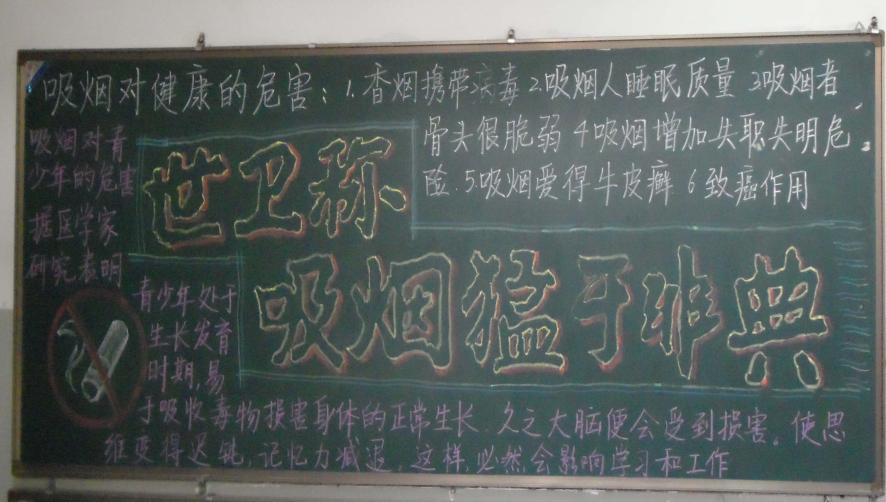 吸烟对健康的危害：1.香烟携带病毒 2.吸烟人睡眠质量 3吸烟者
骨头很脆弱 4吸烟增加失职失明危
险.5.吸烟爱得牛皮癣 6致癌作用
世卫称
吸烟猛于非典
吸烟对青
少年的危害
据医学家
研究表明
青少年处于
生长发育
时期,易
于吸收毒物损害身体的正常生长.久之大脑便会受到损害。使思
维变得迟钝,记忆力减退,这样,必然会影响学习和工作